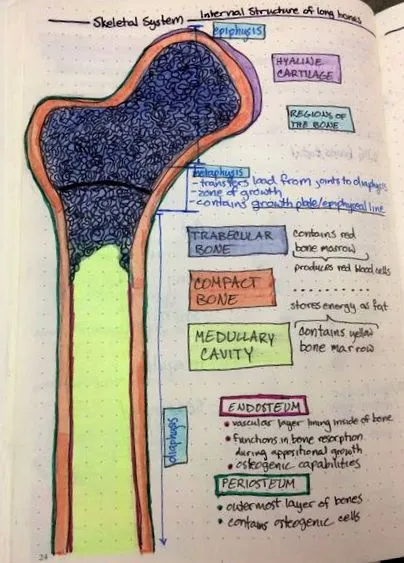 Skeletal System
Internal Structure of long bones
epiphysis
HYALINE
CARTILAGE
REGIONS OF
THE BONE
metaphysis
- transfers load from joints to diaphysis
- zone of growth
- contains growth plate/epiphyseal line
TRABECULAR
BONE
contains red
bone marrow
produces red blood cells
COMPACT
BONE
stores energy as fat
MEDULLARY
CAVITY
contains yellow
bone marrow
diaphysis
ENDOSTEUM
• vascular layer lining inside of bone
• functions in bone resorption
during appositional growth
• osteogenic capabilities
PERIOSTEUM
• outermost layer of bones
• contains osteogenic cells
24